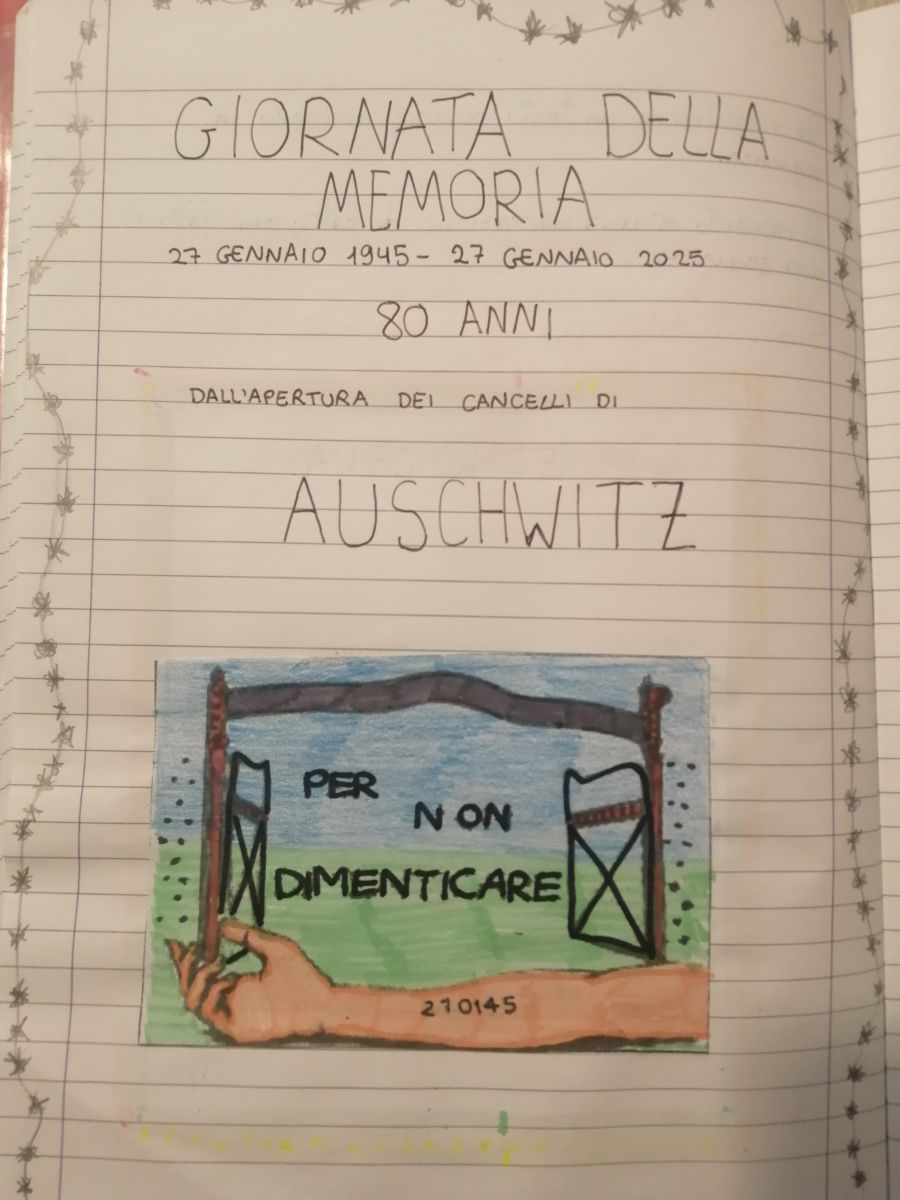 GIORNATA DELLA
MEMORIA
27 GENNAIO 1945 - 27 GENNAIO 2025
80 ANNI
DALL'APERTURA DEI CANCELLI DI
AUSCHWITZ
PER
NON
DIMENTICARE
270145